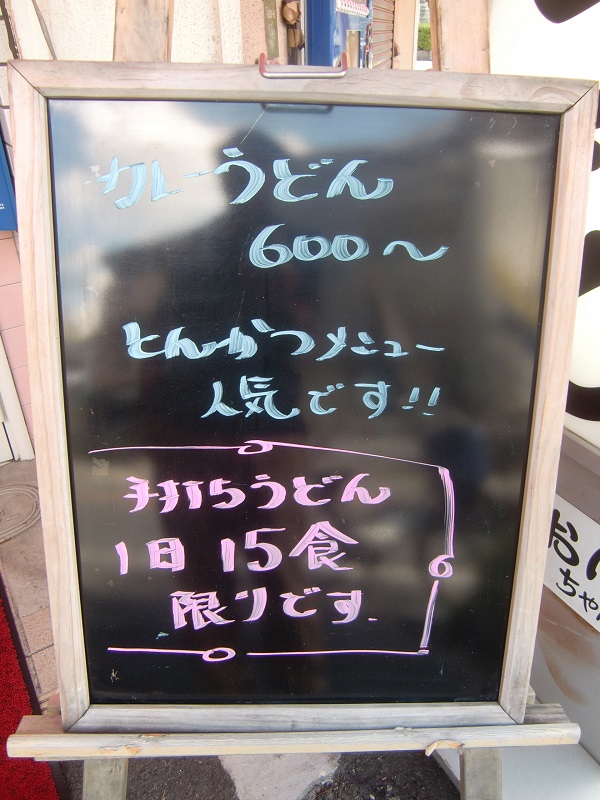 カレーうどん
600〜
とんかつメニュー
人気です!!
手打ちうどん
1日15食
限りです.
おん
ちゃん